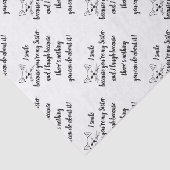 I smile
because you're my Sister
and I laugh because
there's nothing
you can do about it!
I smile
because you're my Sister
and I laugh because
there's nothing
you can do about it!
I smile
because you're my Sister
and I laugh because
there's nothing
you can do about it!